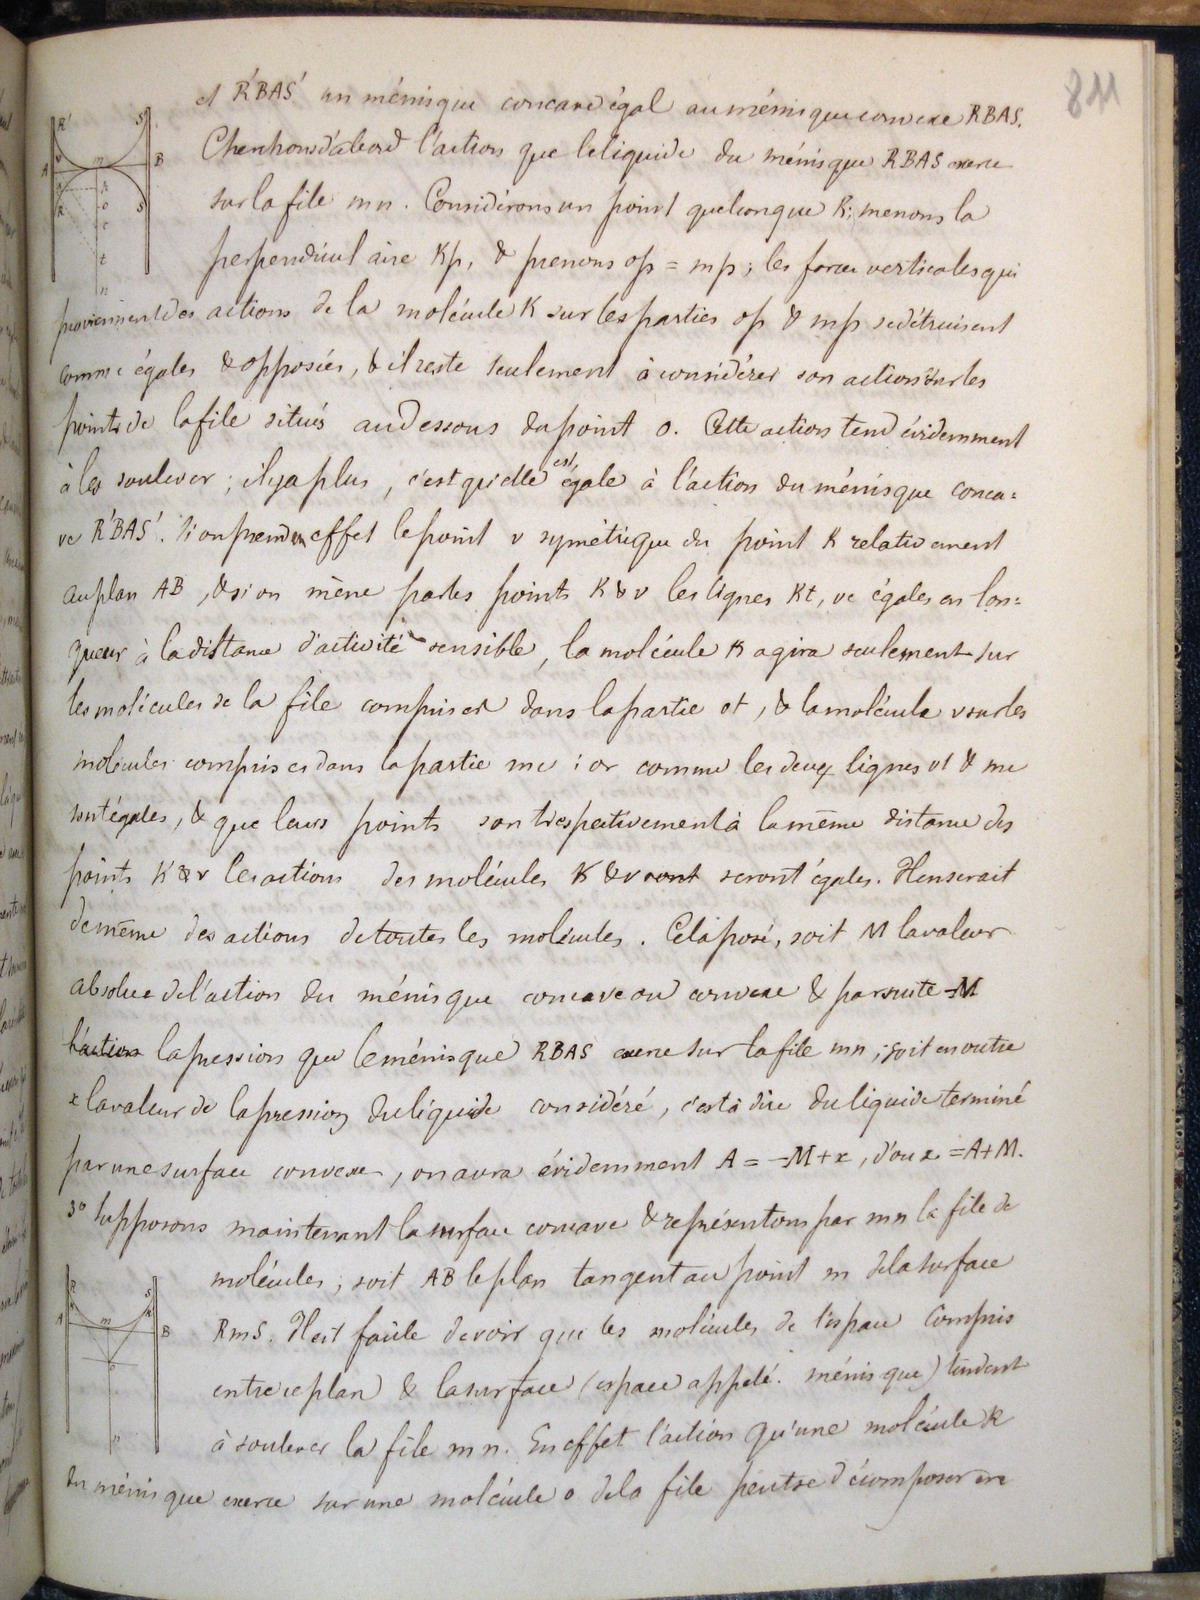 811
et R'BAS' un ménisque concave égal au ménisque convexe RBAS.
Cherchons d'abord l'action que le liquide du ménisque RBAS exerce
sur la file mn. Considérons un point quelconque K; menons la
perpendiculaire Kp, & prenons op = mp; les forces verticales qui
proviennent des actions de la molécule K sur les parties op & mp se détruisent
comme égales & opposées, & il reste seulement à considérer son action sur les
points de la file situés au dessous du point o. Cette action tend évidemment
à les soulever; il y a plus, c'est qu'elle est égale à l'action du ménisque conca=
ve R'BAS'. Si on prend en effet le point v symétrique du point K relativement
au plan AB, & si on mène par les points K & v les lignes Kt, vc égales en lon=
gueur à la distance d'activité sensible, la molécule K agira seulement sur
les molécules de la file comprises dans la partie ot, & la molécule v sur les
molécules comprises dans la partie mc : or comme les deux lignes ot & mc
sont égales, & que leurs points sont respectivement à la même distance des
points K & v les actions des molécules K & v sont seront égales. Il en serait
de même des actions de toutes les molécules. Cela posé, soit M la valeur
absolue de l'action du ménisque concave ou convexe & par suite -M
l'action la pression que le ménisque RBAS exerce sur la file mn; soit en outre
x la valeur de la pression du liquide considéré, c'est à dire du liquide terminé
par une surface convexe, on aura évidemment A = -M+x, d'où x = A+M.
3° Supposons maintenant la surface concave & représentons par mn la file de
molécules; soit AB le plan tangent au point m de la surface
RmS. Il est facile de voir que les molécules de l'espace compris
entre ce plan & la surface (espace appelé ménisque) tendent
à soulever la file mn. En effet l'action qu'une molécule K
du ménisque exerce sur une molécule o de la file peut se décomposer en